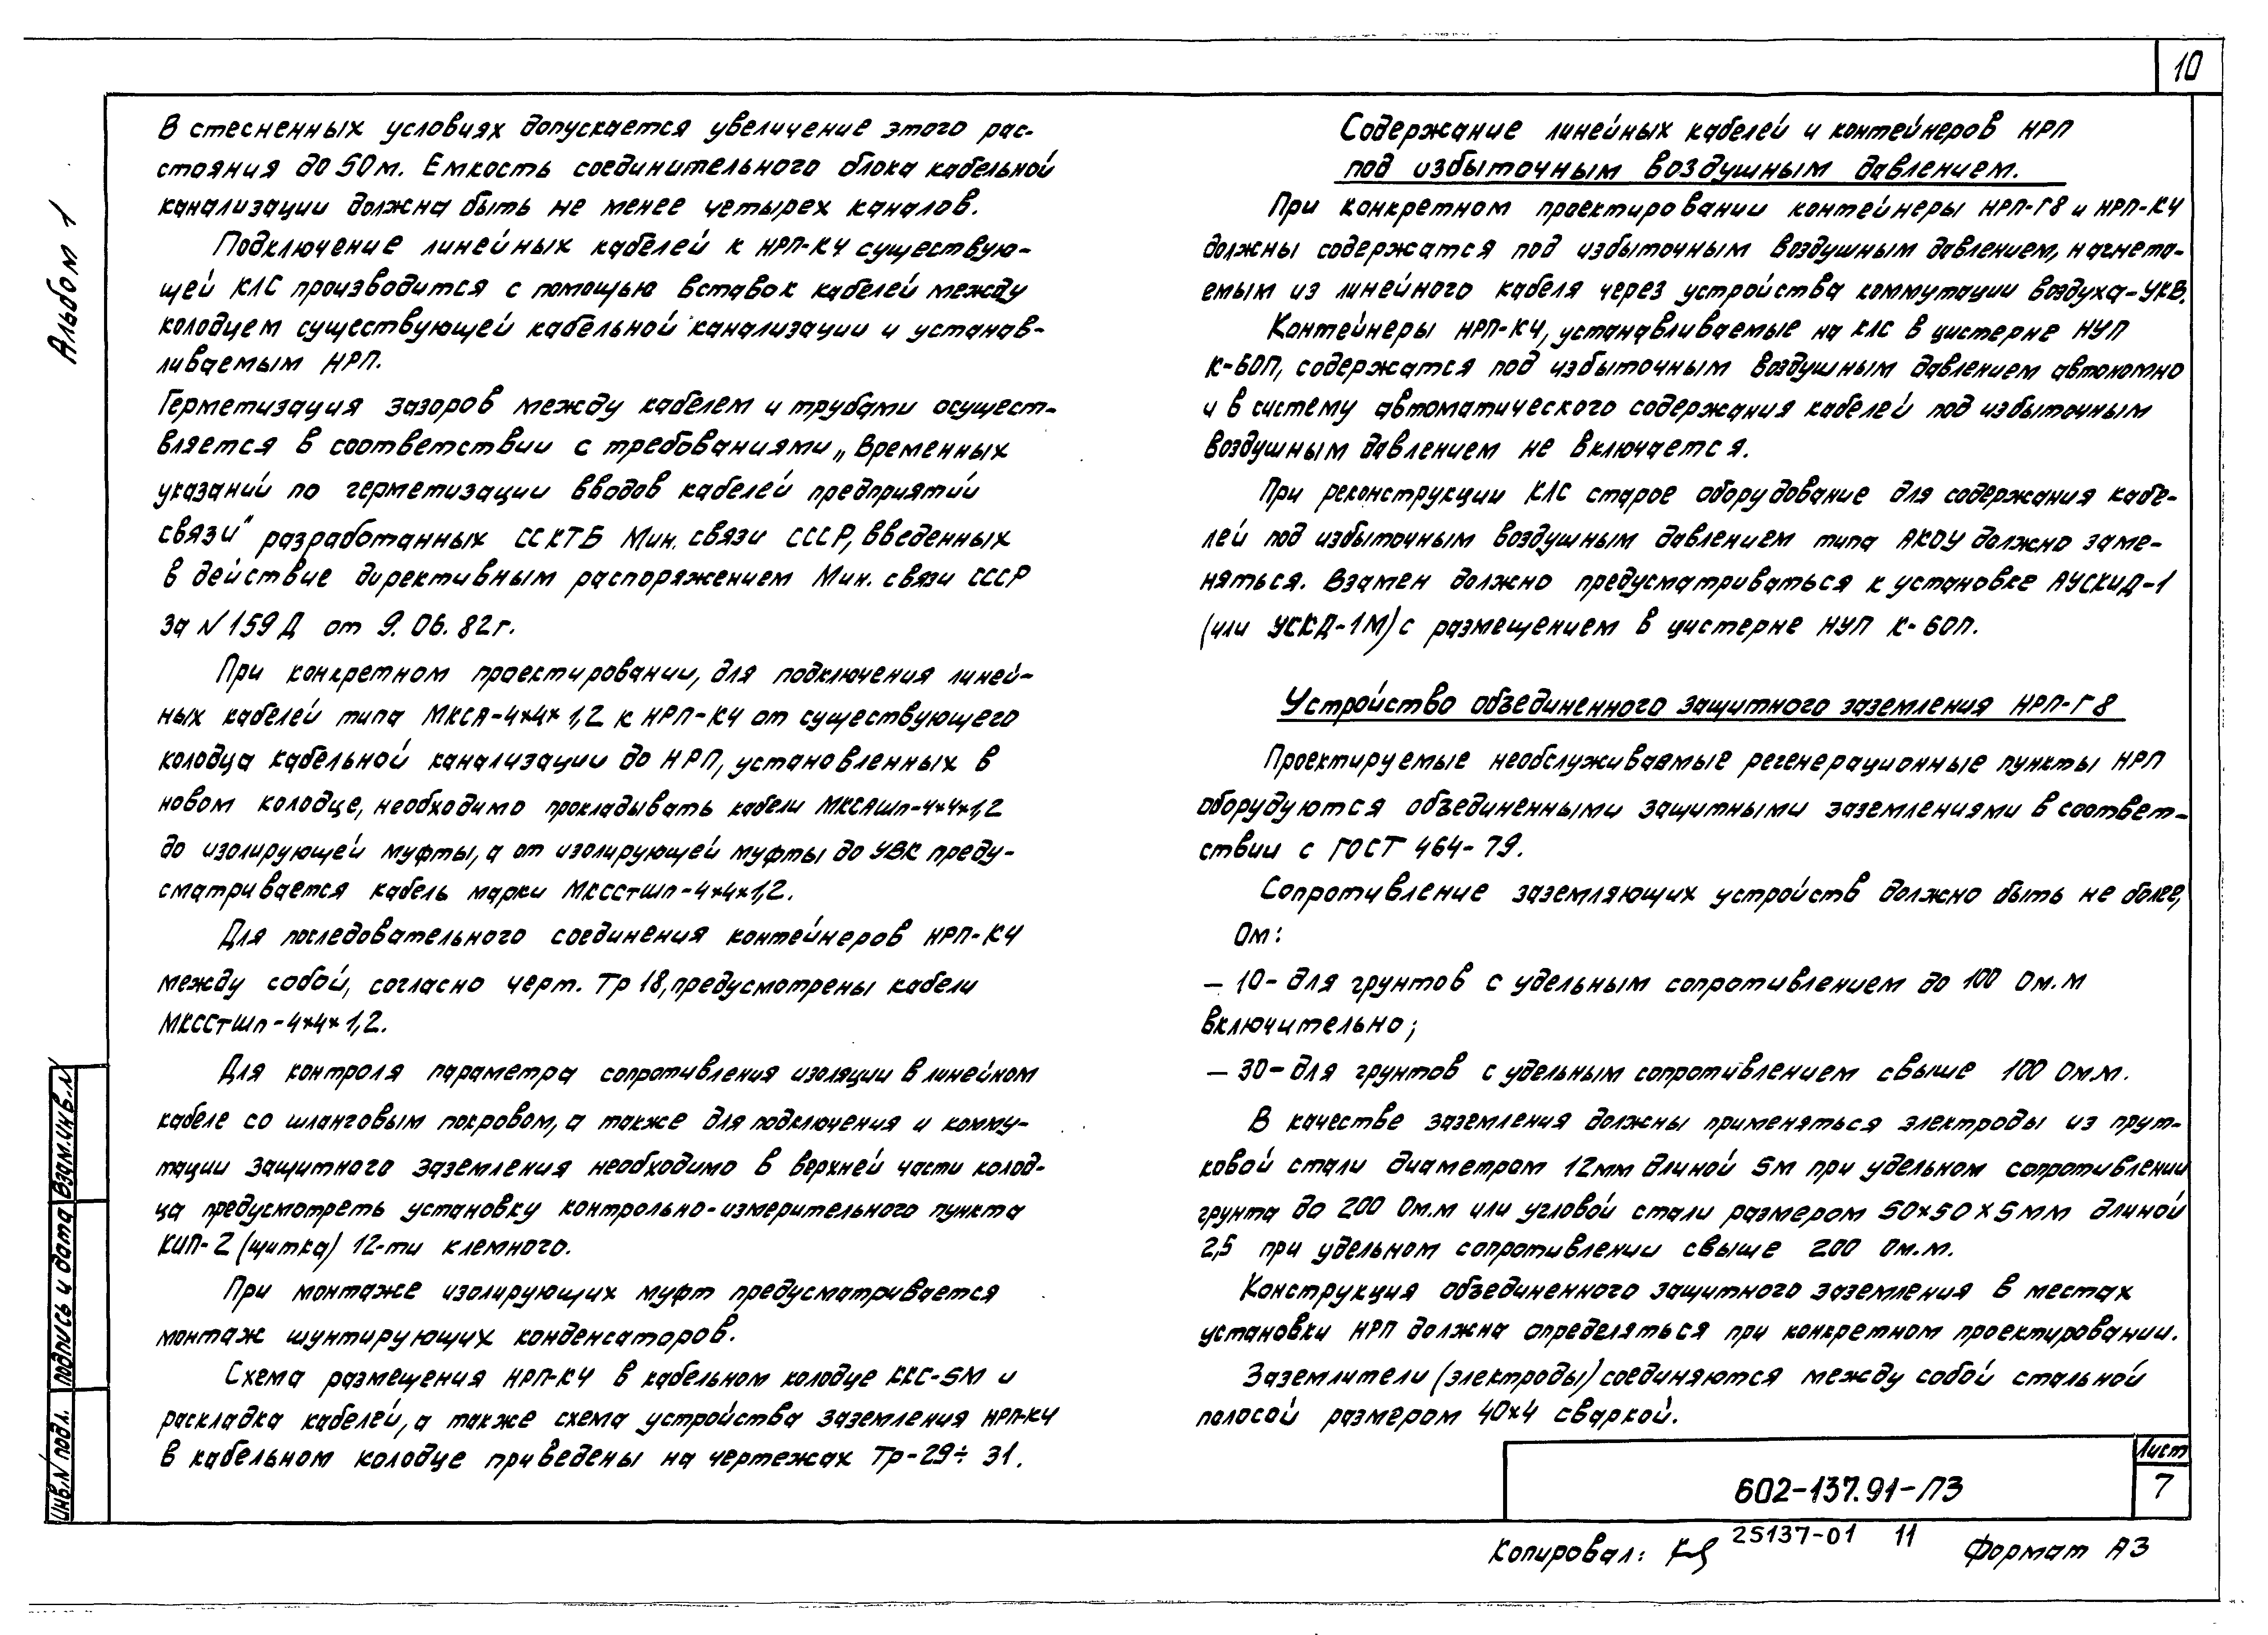 10
Альбом 1
В стесненных условиях допускается увеличение этого рас-
стояния до 50м. Емкость соединительного блока кабельной
канализации должна быть не менее четырех каналов.
Подключение линейных кабелей к НРП-К4 существую-
щей КЛС производится с помощью вставок кабелей между
колодцем существующей кабельной канализации и устанав-
ливаемым НРП.
Герметизация зазоров между кабелем и трубами осущест-
вляется в соответствии с требованиями „Временных
указаний по герметизации вводов кабелей предприятий
связи" разработанных ССКТБ Мин. связи СССР, введенных
в действие директивным распоряжением Мин. связи СССР
за N 159 Д от 9. 06. 82г.
При конкретном проектировании, для подключения линей-
ных кабелей типа МКСА-4×4×1,2 к НРП-К4 от существующего
колодца кабельной канализации до НРП, установленных в
новом колодце, необходимо прокладывать кабели МКСАшп-4×4×1,2
до изолирующей муфты, а от изолирующей муфты до УВК преду-
сматривается кабель марки МКССтШп-4×4×1,2.
Для последовательного соединения контейнеров НРП-К4
между собой, согласно черт. Тр 18, предусмотрены кабели
МКССтШп-4×4×1,2.
Для контроля параметра сопротивления изоляции в линейном
кабеле со шланговым покровом, а также для подключения и комму-
тации защитного заземления необходимо в верхней части колод-
ца предусмотреть установку контрольно-измерительного пункта
КИП-2 (щитка) 12-ти клемного.
При монтаже изолирующих муфт предусматривается
монтаж шунтирующих конденсаторов.
Схема размещения НРП-К4 в кабельном колодце ККС-5М и
раскладка кабелей, а также схема устройства заземления НРП-К4
в кабельном колодце приведены на чертежах Тр-29÷31.
Содержание линейных кабелей и контейнеров НРП
под избыточным воздушным давлением.
При конкретном проектировании контейнеры НРП-Г8 и НРП-К4
должны содержатся под избыточным воздушным давлением, нагнета-
емым из линейного кабеля через устройства коммутации воздуха-УКВ.
Контейнеры НРП-К4, устанавливаемые на КЛС в цистерне НУП
К-60П, содержатся под избыточным воздушным давлением автономно
и в систему автоматического содержания кабелей под избыточным
воздушным давлением не включается.
При реконструкции КЛС старое оборудование для содержания кабе-
лей под избыточным воздушным давлением типа АКОУ должно заме-
няться. Взамен должно предусматриваться к установке АУСКИД-1
(или УСКД-1М) с размещением в цистерне НУП К-60П.
Устройство объединенного защитного заземления НРП-Г8
Проектируемые необслуживаемые регенерационные пункты НРП
оборудуются объединенными защитными заземлениями в соответ-
ствии с ГОСТ 464-79.
Сопротивление заземляющих устройств должно быть не более,
Ом:
– 10- для грунтов с удельным сопротивлением до 100 Ом.м
включительно;
– 30- для грунтов с удельным сопротивлением свыше 100 Ом.м.
В качестве заземления должны применяться электроды из прут-
ковой стали диаметром 12мм длиной 5м при удельном сопротивлении
грунта до 200 Ом.м или угловой стали размером 50×50×5мм длиной
2,5 при удельном сопротивлении свыше 200 Ом.м.
Конструкция объединенного защитного заземления в местах
установки НРП должна определяться при конкретном проектировании.
Заземлители (электроды) соединяются между собой стальной
полосой размером 40×4 сваркой.
Инв.N подл. Подпись и дата Взам.инв.N
602-137.91-ПЗ
Лист
7
Копировал: 25137-01 11 Формат А3